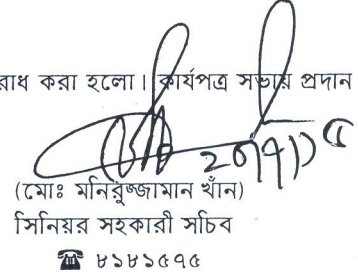 রোধ করা হলো। কার্যপত্র সভায় প্রদান
(মোঃ মনিরুজ্জামান খাঁন)
সিনিয়র সহকারী সচিব
☎ ৮১৮১৫৭৫